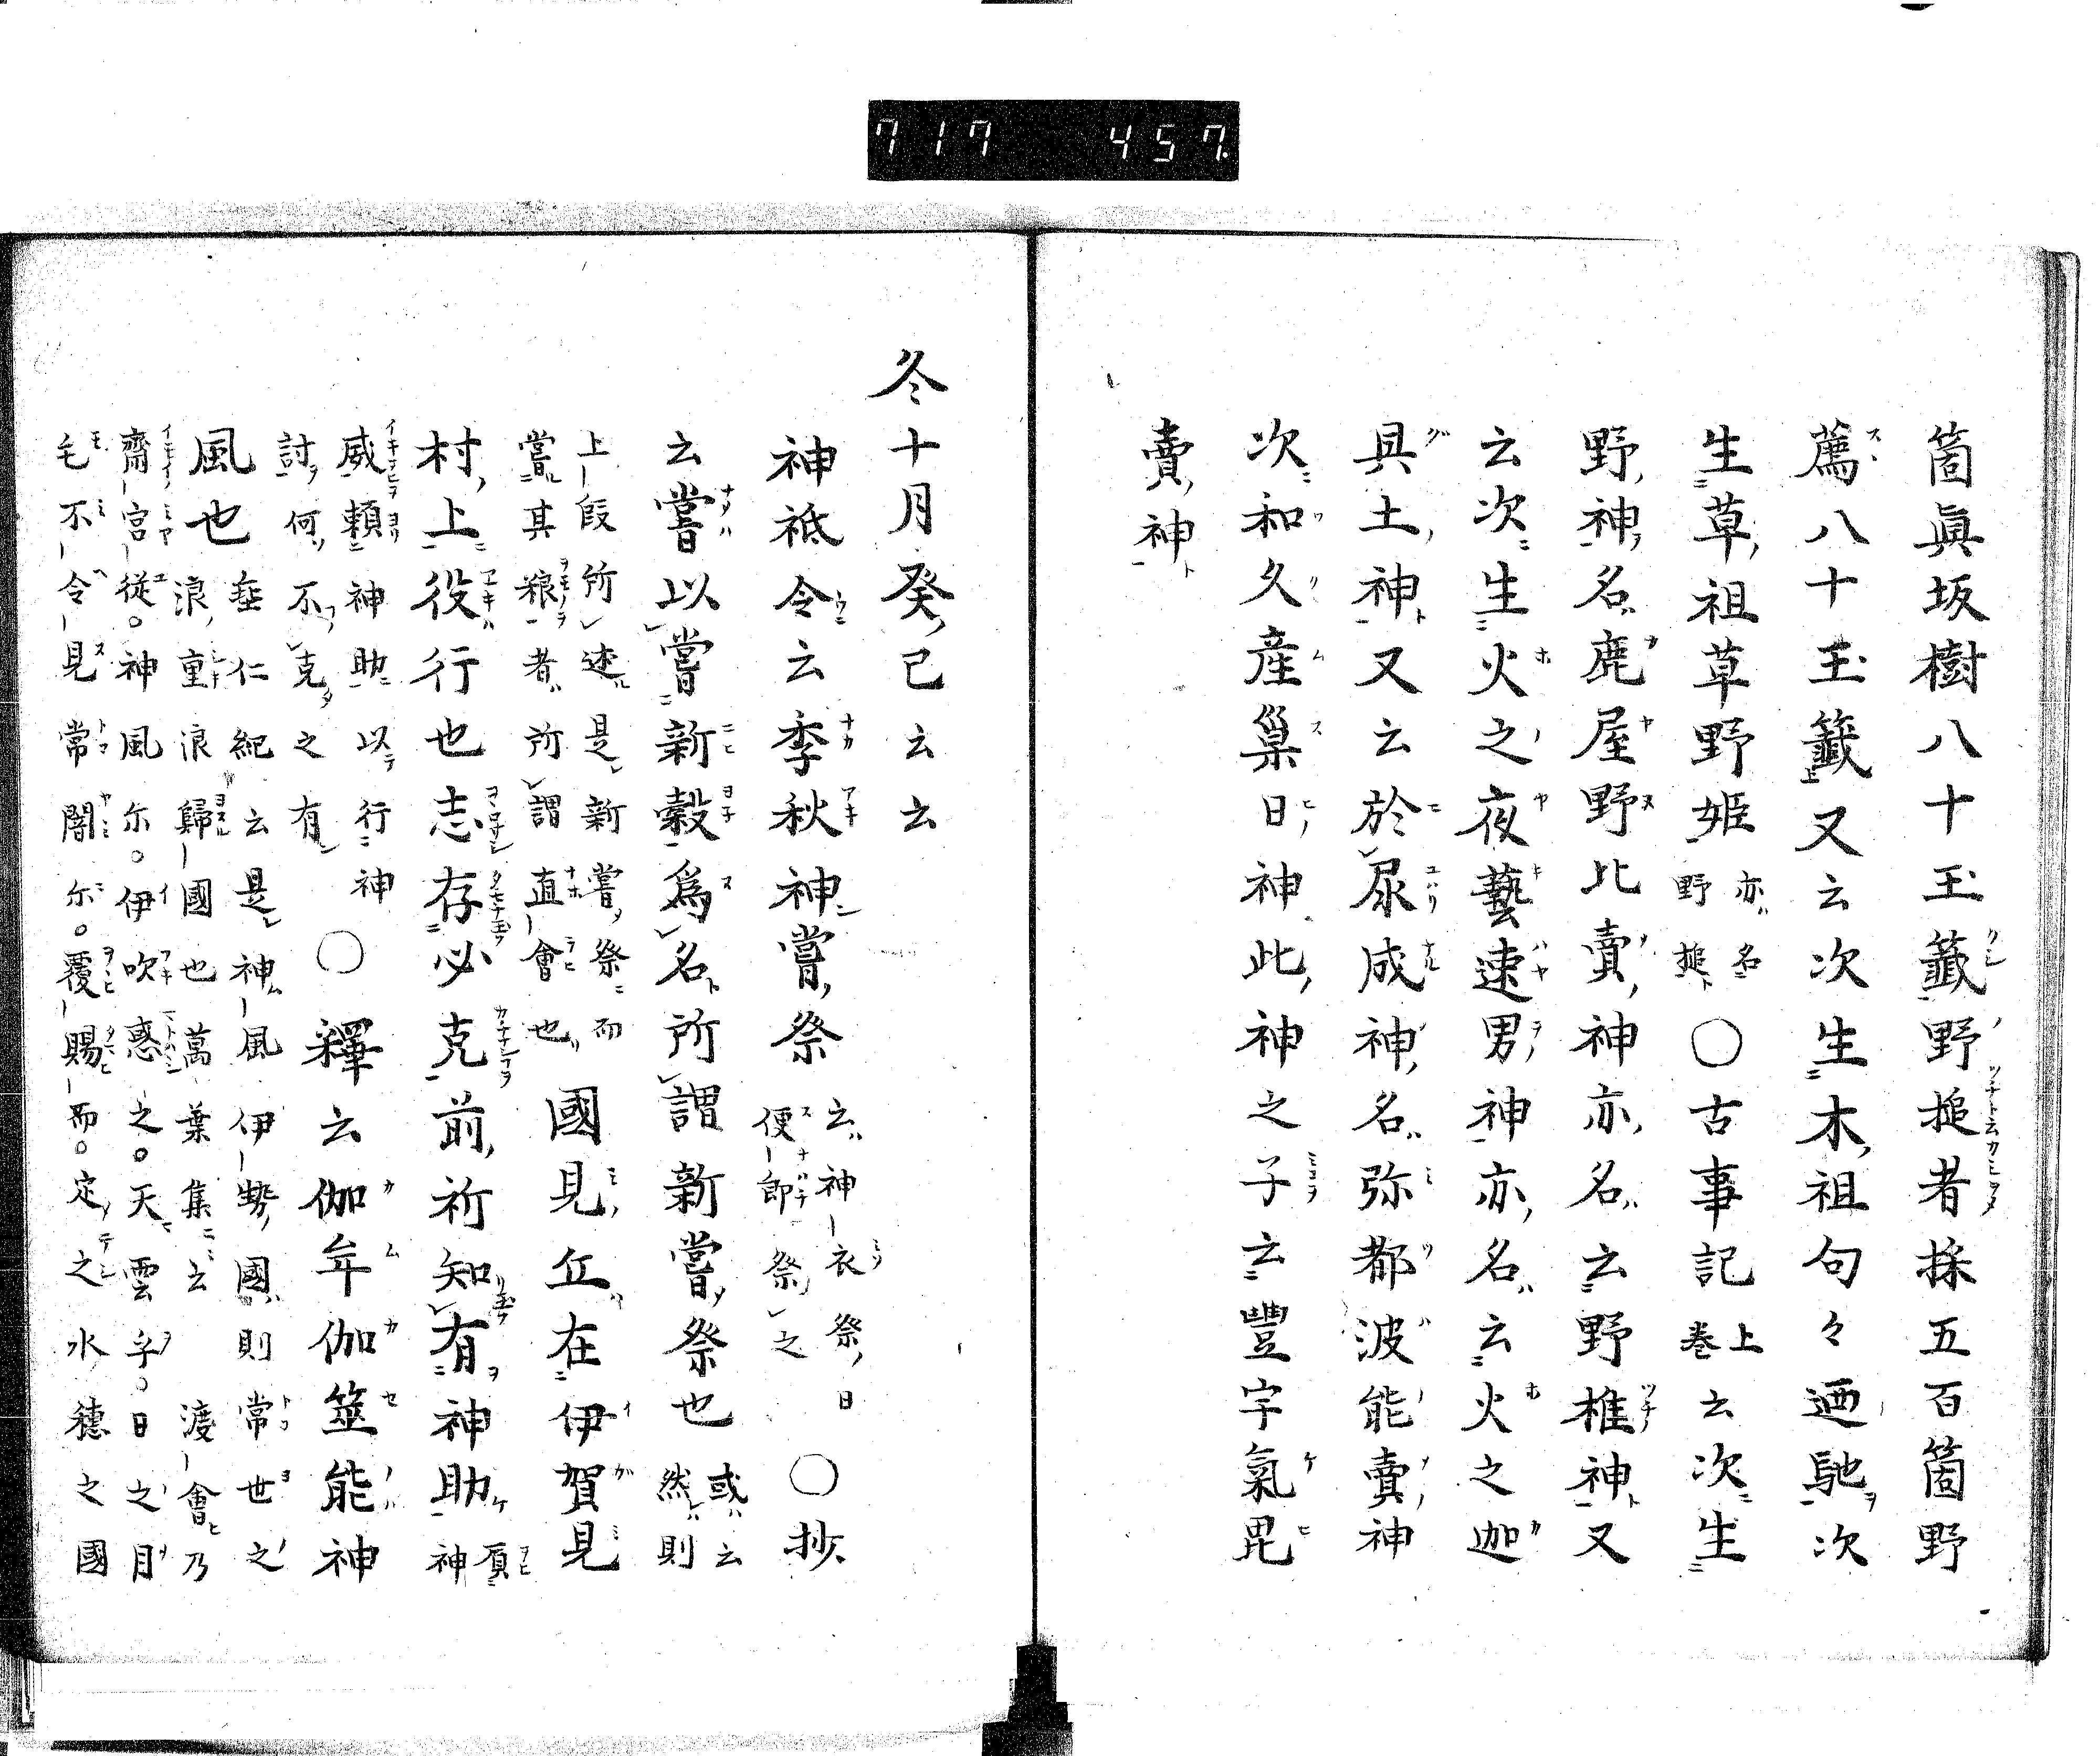 717 457.
箇眞坂樹八十玉籤野槌者採五百箇野
薦八十玉籤又云次生木祖句々廼馳次
生草祖草野姫亦名野槌○古事記上巻云次生
野神名鹿屋野比賣神亦名云野椎神又
云次生火之夜藝速男神亦名云火之迦
具土神又云於尿成神名弥都波能賣神
次和久産巣日神此神之子云豐宇氣毘
賣神
冬十月癸已云云
神祗令云季秋神嘗祭云神衣祭日便即祭之○抄
云嘗以嘗新穀爲名所謂新嘗祭也或云然則
上叚所述是新嘗祭而嘗其粮者所謂直會也國見丘在伊賀見
村上役行也志存必克前祈知有神助神
威頼神助以行神討何不克之有○釋云伽牟伽筮能神
風也垂仁紀云是神風伊勢國則常世之浪重浪歸國也萬葉集ニ云渡會乃
齋宮從。神風尓。伊吹惑之。天雲乎。日之目
毛不令見常闇尓。覆賜而。定之水穂之國